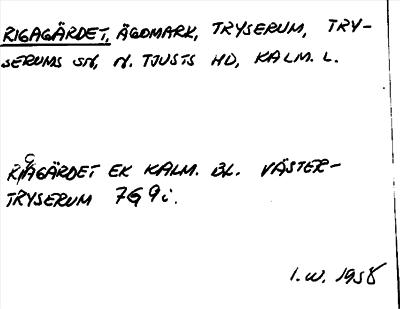 RIGAGÄRDET, ÄGOMARK, TRYSERUM, TRY-
SERUMS SN, N. TJUSTS HD, KALM. L.
RIGAGÄRDET EK KALM. BL. VÄSTER-
TRYSERUM 7G 9i.
I.W. 1958